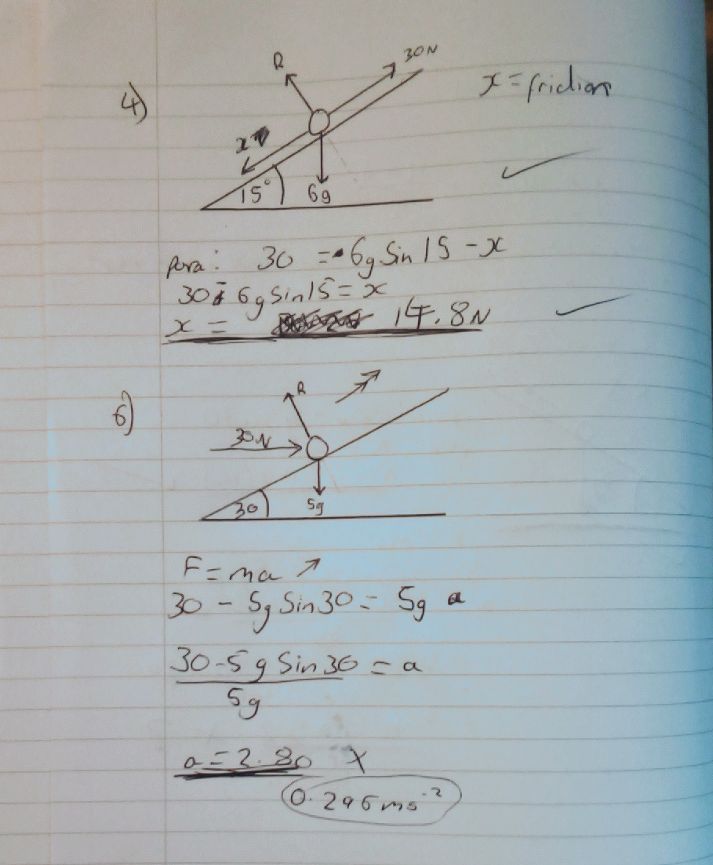 4)
R
30N
x = friction
x
15°
6g
para: 30 = 6g Sin 15 - x
30 - 6g Sin 15 = x
x = 14.8N
6)
R
30N
30
5g
F = ma ↗
30 - 5g Sin 30 = 5g a
30 - 5g Sin 30 = a
5g
a = 2.80 X
0.296 ms⁻²